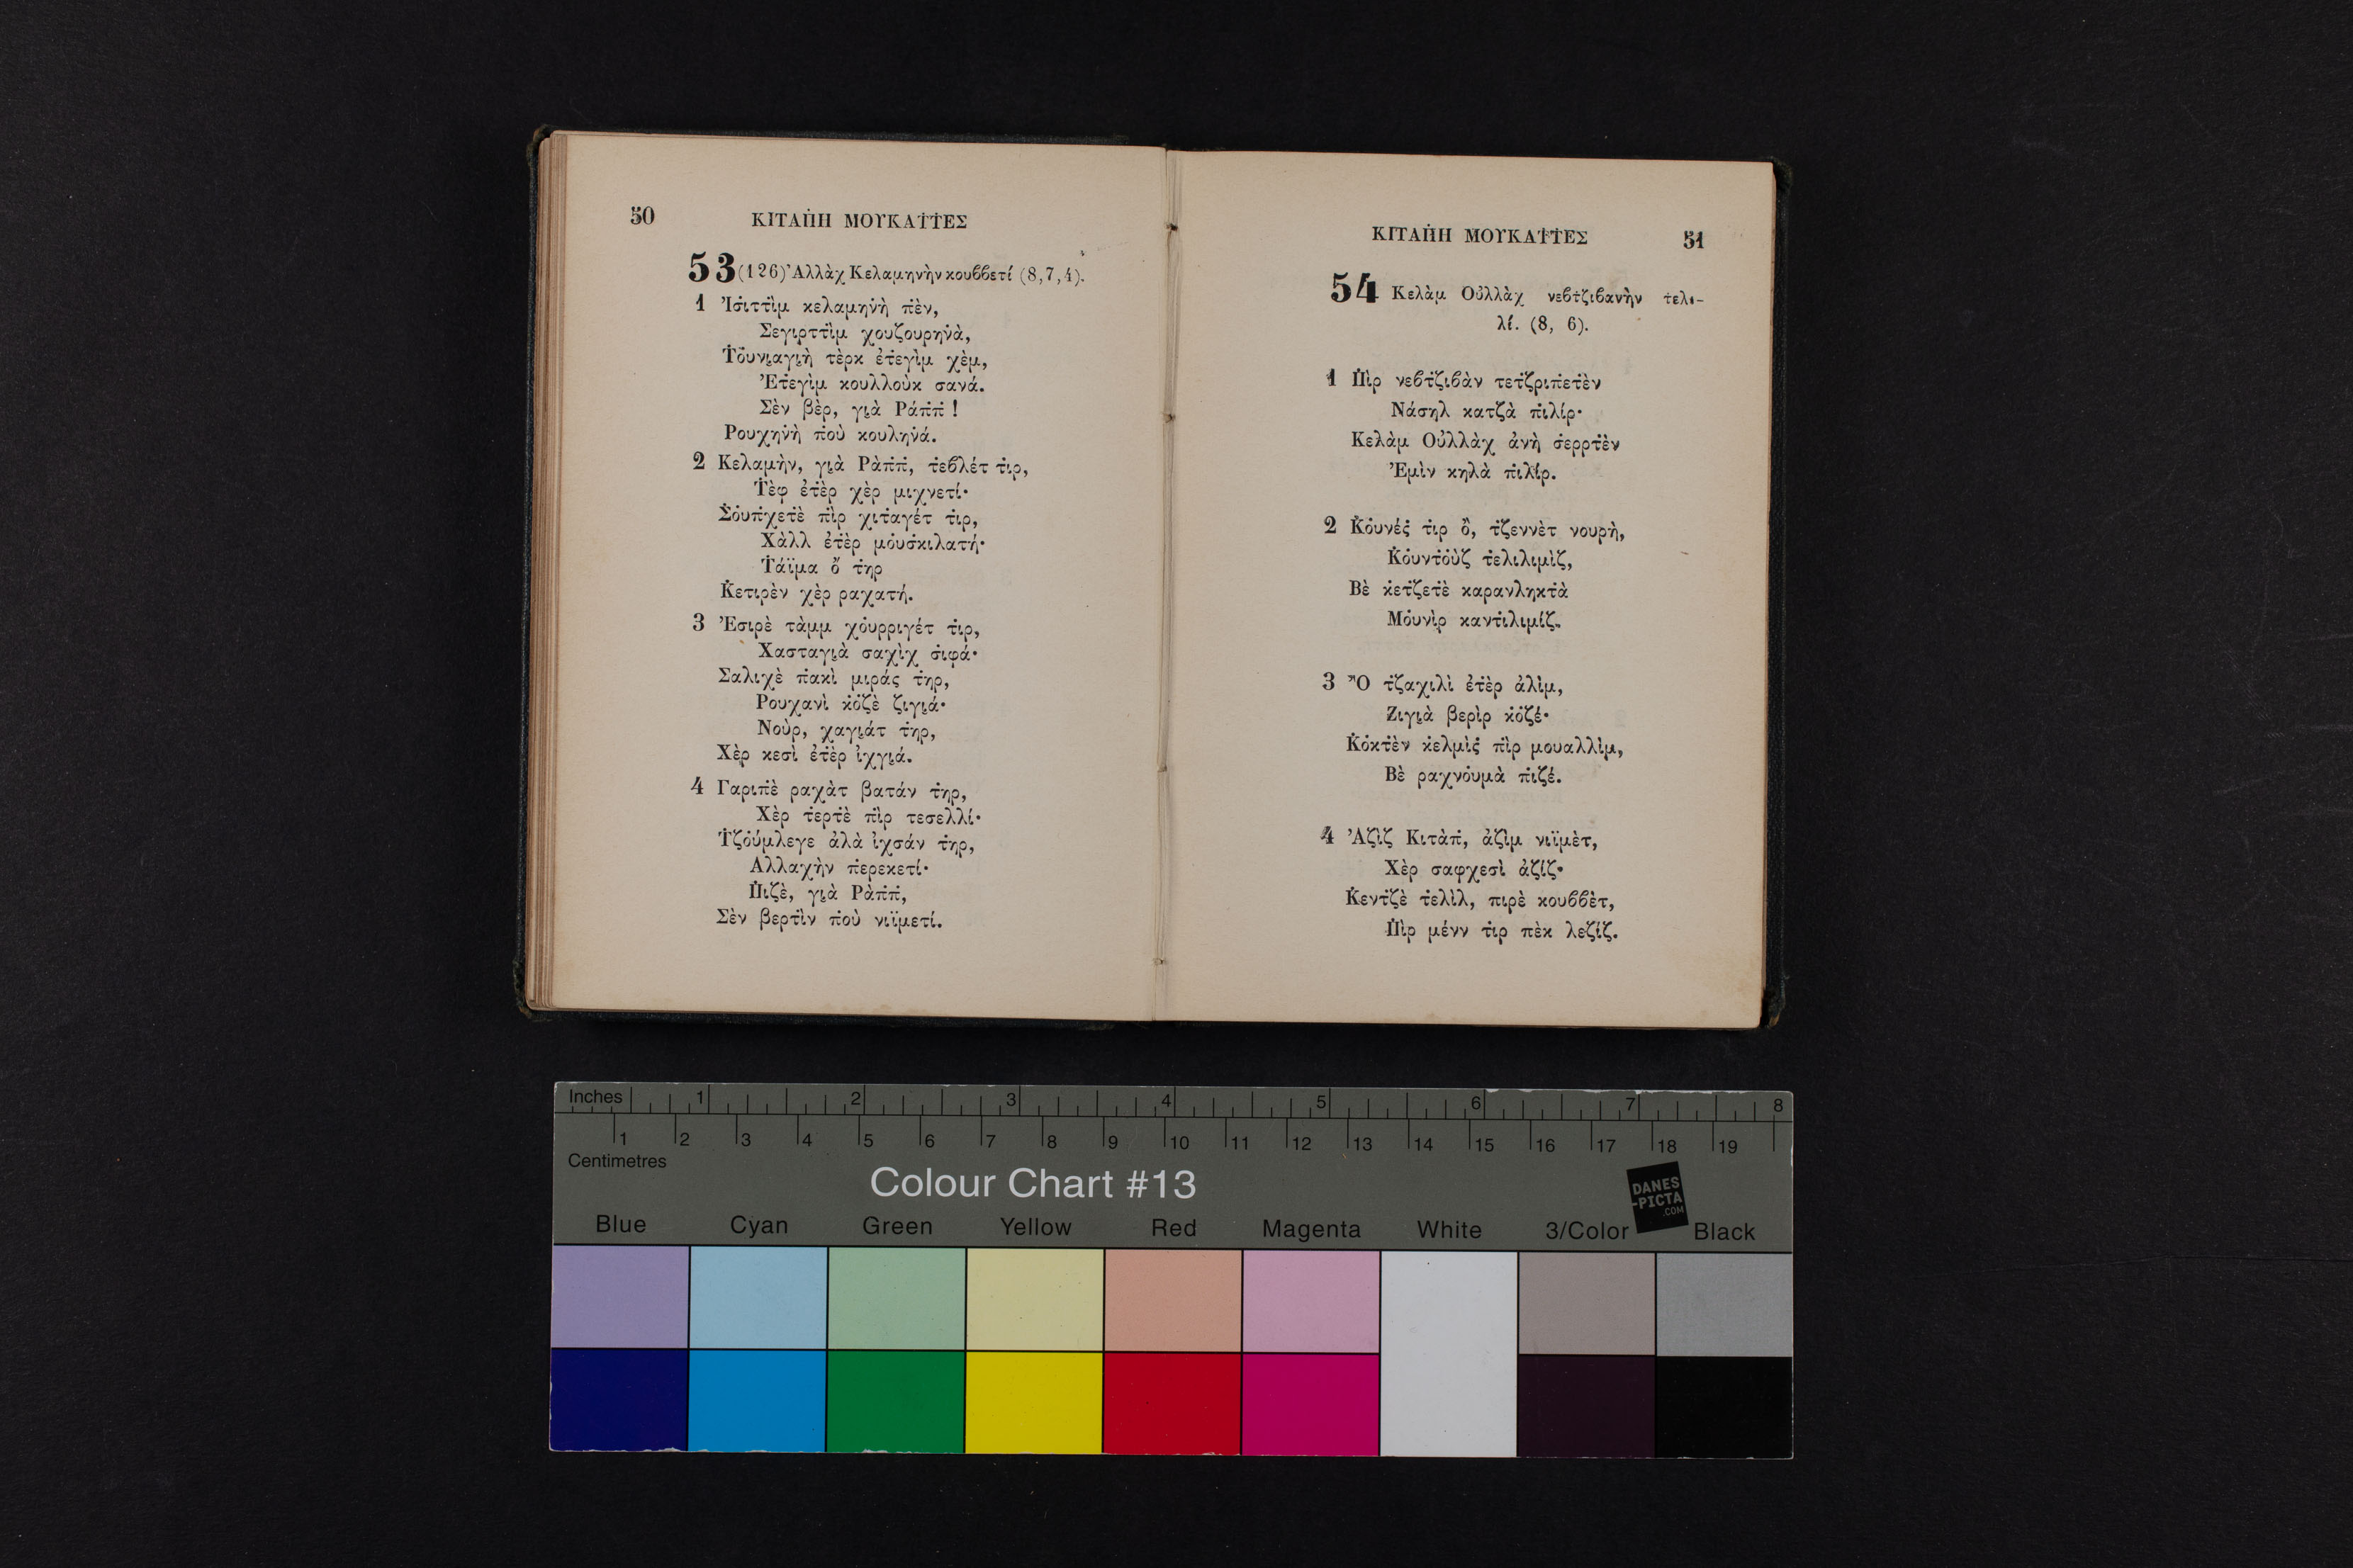 50
ΚΙΤΑΠ̇Η ΜΟΥΚΑΤ̇Τ̇ΕΣ
53 (126) Ἀλλὰχ Κελαμηνὴν κουββετί (8,7,4).
1 Ἰσ̇ιττ̇ὶμ κελαμην̇ὴ π̇ὲν,
Σεγιρττ̇ὶμ χουζουρην̇ὰ,
Τ̇ο̇υνι̮αγι̮ὴ τὲρκ ἐτ̇εγὶμ χὲμ,
Ἐτ̇εγὶμ κουλλοὺκ σανά.
Σὲν βὲρ, γι̮ὰ Ράπ̇π̇ !
Ρουχην̇ὴ π̇οὺ κουλην̇ά.
2 Κελαμὴν, γι̮ὰ Ρὰπ̇π̇, τ̇εβλέτ τ̇ιρ,
Τ̇ὲφ ἐτ̇ὲρ χὲρ μιχνετί·
Σ̇ο̇υπ̇χετ̇ὲ π̇ὶρ χιτ̇αγέτ τ̇ιρ,
Χὰλλ ἐτ̇ὲρ μο̇υσ̇κιλατή·
Τ̇άϊμα ὂ τ̇ηρ
Κ̇ετιρὲν χὲρ ραχατή.
3 Ἐσιρὲ τὰμμ χο̇υρριγέτ τ̇ιρ,
Χασταγι̮ὰ σαχὶχ σ̇ιφά·
Σαλιχὲ π̇ακὶ μιράς τ̇ηρ,
Ρουχανὶ κ̇ο̇ζὲ ζιγι̮ά·
Νοὺρ, χαγι̮άτ τ̇ηρ,
Χὲρ κεσὶ ἐτ̇ὲρ ἰχγι̮ά.
4 Γαριπ̇ὲ ραχὰτ βατάν τ̇ηρ,
Χὲρ τ̇ερτ̇ὲ π̇ὶρ τεσελλί·
Τ̇ζο̇ύμλεγε ἀλὰ ἰχσάν τ̇ηρ,
Αλλαχὴν π̇ερεκετί·
Π̇ιζὲ, γι̮ὰ Ρὰπ̇π̇,
Σὲν βερτ̇ὶν π̇οὺ νιϊμετί.
ΚΙΤΑΠ̇Η ΜΟΥΚΑΤ̇Τ̇ΕΣ
51
54 Κελὰμ Οὐλλὰχ νεβτ̇ζιβανὴν τ̇ελι-
λί. (8, 6).
1 Π̇ὶρ νεβτ̇ζιβὰν τετ̇ζριπ̇ετ̇ὲν
Νάσηλ κατζὰ π̇ιλίρ·
Κελὰμ Οὐλλὰχ ἀνὴ σ̇ερρτ̇ὲν
Ἐμὶν κηλὰ π̇ιλίρ.
2 Κ̇ο̇υνέσ̇ τ̇ιρ ὂ, τ̇ζεννὲτ νουρὴ,
Κ̇ο̇υντ̇ο̇ὺζ τ̇ελιλιμὶζ,
Βὲ κ̇ετ̇ζετ̇ὲ καρανληκτ̇ὰ
Μο̇υνὶρ καντ̇ιλιμίζ.
3 Ὂ τ̇ζαχιλὶ ἐτ̇ὲρ ἀλὶμ,
Ζιγι̮ὰ βερὶρ κ̇ο̇ζέ·
Κ̇ο̇κτ̇ὲν κ̇ελμὶσ̇ π̇ὶρ μουαλλὶμ,
Βὲ ραχνο̇υμὰ π̇ιζέ.
4 Ἀζὶζ Κιτὰπ̇, ἀζὶμ νιϊμὲτ,
Χὲρ σαφχεσὶ ἀζίζ·
Κ̇εντ̇ζὲ τ̇ελὶλ, πιρὲ κουββὲτ,
Π̇ὶρ μένν τ̇ιρ πὲκ λεζίζ.
Inches 1 2 3 4 5 6 7 8
1 2 3 4 5 6 7 8 9 10 11 12 13 14 15 16 17 18 19
Centimetres
Colour Chart #13
DANES
-PICTA
.COM
Blue Cyan Green Yellow Red Magenta White 3/Color Black